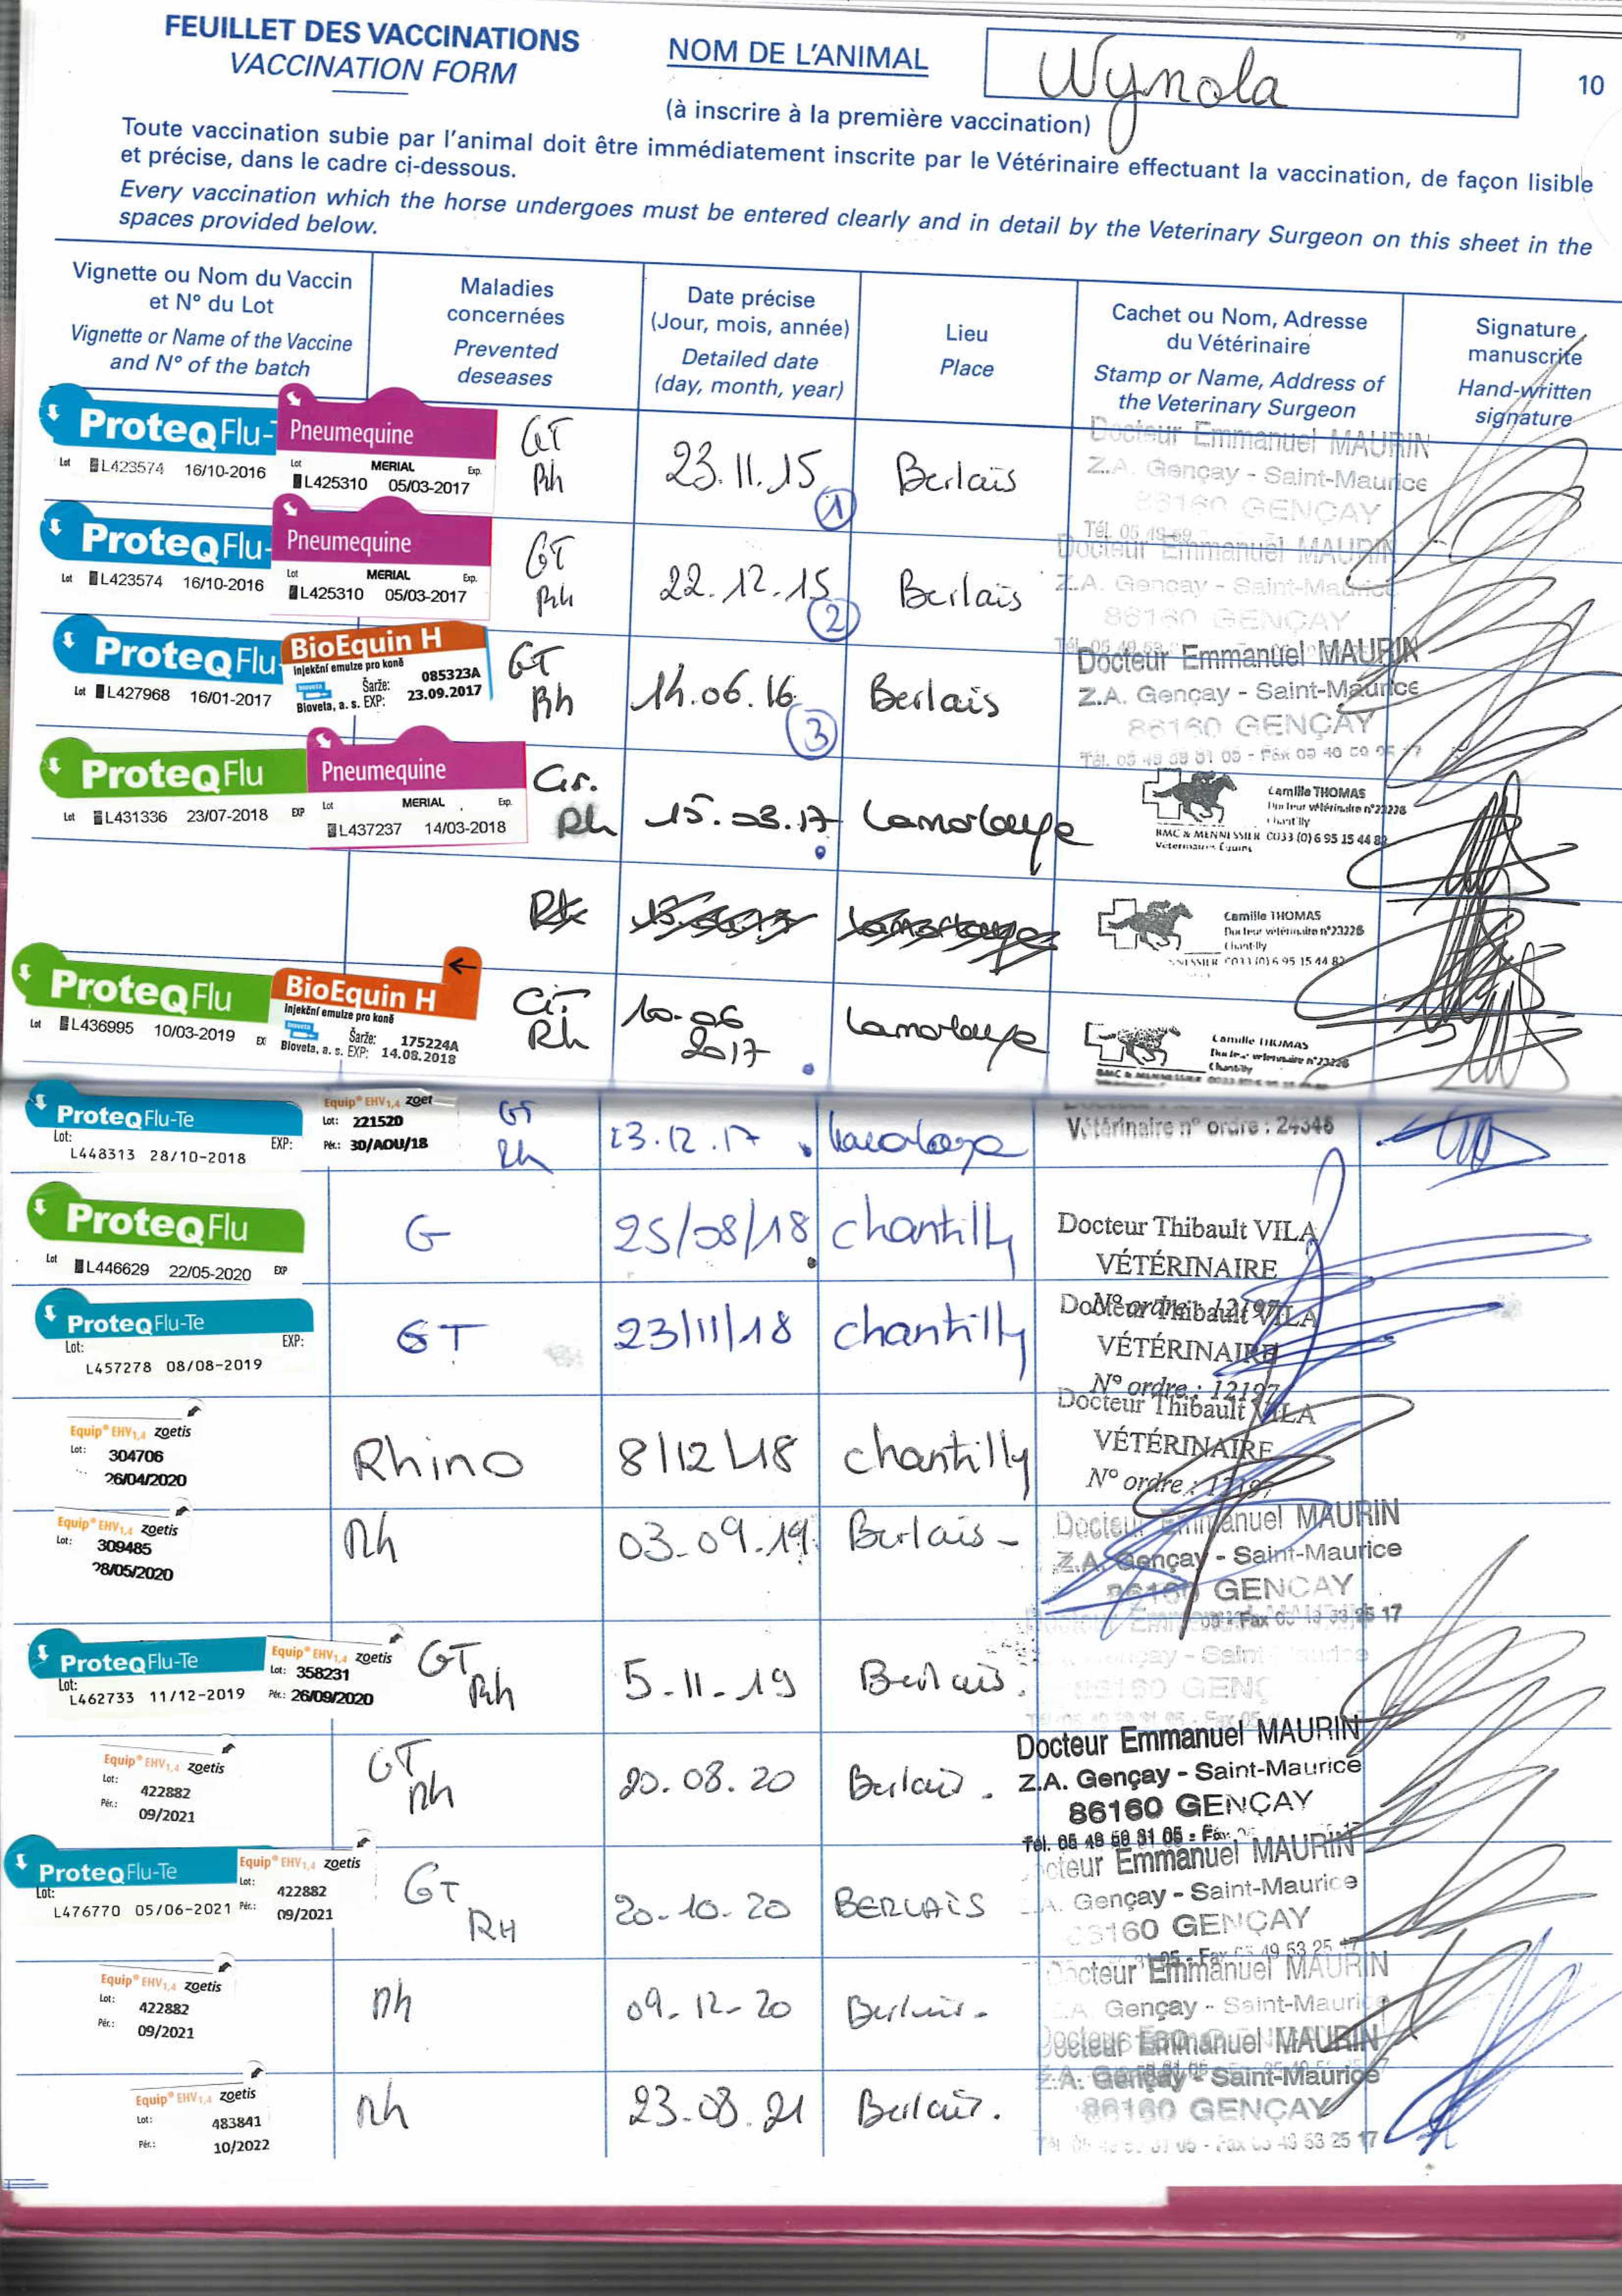 FEUILLET DES VACCINATIONS
VACCINATION FORM
NOM DE L'ANIMAL
Wynola
10
(à inscrire à la première vaccination)
Toute vaccination subie par l'animal doit être immédiatement inscrite par le Vétérinaire effectuant la vaccination, de façon lisible
et précise, dans le cadre ci-dessous.
Every vaccination which the horse undergoes must be entered clearly and in detail by the Veterinary Surgeon on this sheet in the
spaces provided below.
Vignette ou Nom du Vaccin
et N° du Lot
Vignette or Name of the Vaccine
and N° of the batch
Maladies
concernées
Prevented
deseases
Date précise
(Jour, mois, année)
Detailed date
(day, month, year)
Lieu
Place
Cachet ou Nom, Adresse
du Vétérinaire
Stamp or Name, Address of
the Veterinary Surgeon
Signature
manuscrite
Hand-written
signature
ProteqFlu- Pneumequine
Lot L423574 16/10-2016
Lot MERIAL Exp.
L425310 05/03-2017
GT
Rh
23.11.15
1
Berlais
Docteur Emmanuel MAURIN
Z.A. Gençay - Saint-Maurice
86160 GENÇAY
Tél. 05 49 59
ProteqFlu- Pneumequine
Lot L423574 16/10-2016
Lot MERIAL Exp.
L425310 05/03-2017
GT
Rh
22.12.15
2
Berlais
Docteur Emmanuel MAURIN
Z.A. Gençay - Saint-Maurice
86160 GENÇAY
ProteqFlu- BioEquin H
Injekční emulze pro koně
Lot L427968 16/01-2017
Šarže: 085323A
Bioveta, a. s. EXP: 23.09.2017
GT
Rh
14.06.16
3
Berlais
Docteur Emmanuel MAURIN
Z.A. Gençay - Saint-Maurice
86160 GENÇAY
ProteqFlu Pneumequine
Lot L431336 23/07-2018 EXP
Lot MERIAL Exp.
L437237 14/03-2018
Gr.
Rh
15.03.17
Lamorlaye
Camille THOMAS
Docteur vétérinaire n°23226
Chantilly
BMC & MENNESSIER 0033 (0)6 95 15 44 82
Vétérinaires Equins
Rh
Camille THOMAS
Docteur vétérinaire n°23226
Chantilly
0033 (0)6 95 15 44 82
ProteqFlu BioEquin H
Injekční emulze pro koně
Lot L436995 10/03-2019
Šarže: 175224A
Bioveta, a. s. EXP: 14.08.2018
GT
Rh
10-06
2017
Lamorlaye
Camille THOMAS
Docteur vétérinaire n°23226
Chantilly
ProteqFlu-Te
Lot: EXP:
L448313 28/10-2018
Equip® EHV1,4 zoet
Lot: 221520
Pér.: 30/AOU/18
GT
Rh
13.12.17
Lamorlaye
Vétérinaire n° ordre : 24346
ProteqFlu
Lot L446629 22/05-2020 EXP
G
25/08/18
chantilly
Docteur Thibault VILA
VÉTÉRINAIRE
N° ordre : 12197
ProteqFlu-Te
Lot: EXP:
L457278 08/08-2019
GT
23/11/18
chantilly
Docteur Thibault VILA
VÉTÉRINAIRE
N° ordre : 12197
Equip® EHV1,4 zoetis
Lot: 304706
26/04/2020
Rhino
8/12/18
chantilly
Docteur Thibault VILA
VÉTÉRINAIRE
N° ordre : 12197
Equip® EHV1,4 zoetis
Lot: 309485
28/05/2020
Rh
03-09.19
Berlais -
Docteur Emmanuel MAURIN
Z.A. Gençay - Saint-Maurice
86160 GENÇAY
ProteqFlu-Te
Lot:
L462733 11/12-2019
Equip® EHV1,4 zoetis
Lot: 358231
Pér.: 26/09/2020
GT
Rh
5-11-19
Berlais.
Equip® EHV1,4 zoetis
Lot: 422882
Pér.: 09/2021
GT
Rh
20.08.20
Berlais.
Docteur Emmanuel MAURIN
Z.A. Gençay - Saint-Maurice
86160 GENÇAY
Tél. 05 49 59 31 05 - Fax
ProteqFlu-Te
Lot:
L476770 05/06-2021
Equip® EHV1,4 zoetis
Lot: 422882
Pér.: 09/2021
GT
RH
20-10-20
BERLAIS
Docteur Emmanuel MAURIN
Z.A. Gençay - Saint-Maurice
86160 GENÇAY
Equip® EHV1,4 zoetis
Lot: 422882
Pér.: 09/2021
Rh
09-12-20
Berlais.
Docteur Emmanuel MAURIN
Z.A. Gençay - Saint-Maurice
Equip® EHV1,4 zoetis
Lot: 483841
Pér.: 10/2022
Rh
23-08.21
Berlais.
Docteur Emmanuel MAURIN
Z.A. Gençay - Saint-Maurice
86160 GENÇAY